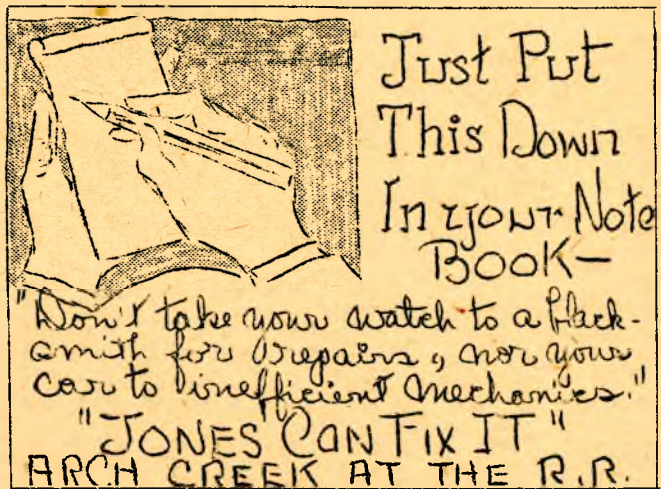 Just Put
This Down
In your Note
BOOK—
"Don't take your watch to a black-
smith for repairs, nor your
car to inefficient mechanics."
"JONES CAN FIX IT"
ARCH CREEK AT THE R.R.